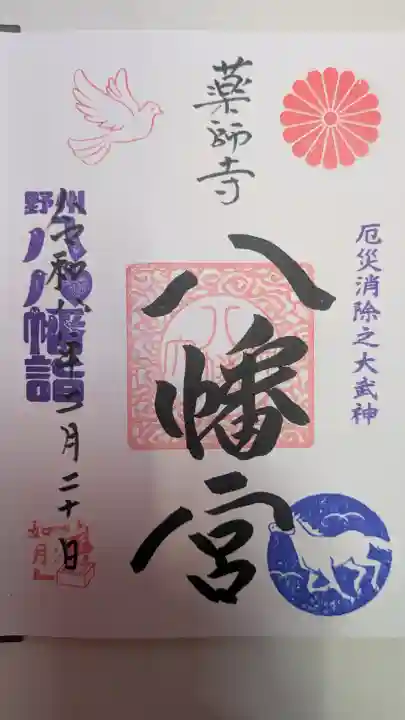 厄災消除之大武神
薬師寺
八幡宮
野州
八八幡詣
令和六年二月二十日
如月